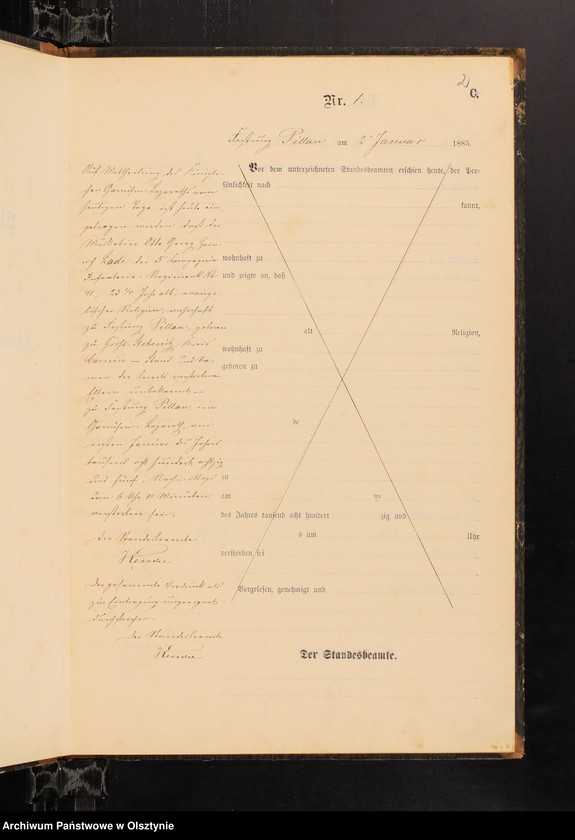 2
C.
Nr. 1.
Festung Pillau am 2 ten Januar 1885.
Auf Mittheilung des Königli-
chen Garnison-Lazareths vom
heutigen Tage ist heute ein-
getragen worden, daß der
Musketier Otto Georg Hein-
rich der 5 Compagnie
Infanterie-Regiments No
41, 23 Jahr alt, evange-
lischer Religion, wohnhaft
zu Festung Pillau, geboren
zu Kreis
Cammin – Stand und Na-
men der bereits verstorbenen
Eltern unbekannt –
zu Festung Pillau im
Garnison-Lazareth, am
ersten Januar des Jahres
tausend acht hundert achtzig
und fünf, Nach-Mittags
um 6 Uhr Minuten
verstorben sei.
Der Standesbeamte
Der gesammte Vordruck als
zur Eintragung ungeeignet
durchstrichen.
Der Standesbeamte
Vor dem unterzeichneten Standesbeamten erschien heute, der Per-
sönlichkeit nach
kannt,
wohnhaft zu
und zeigte an, daß
alt Religion,
wohnhaft zu
geboren zu
de
zu
am ten
des Jahres tausend acht hundert zig und
s um Uhr
verstorben sei
Vorgelesen, genehmigt und
Der Standesbeamte.
Archiwum Państwowe w Olsztynie